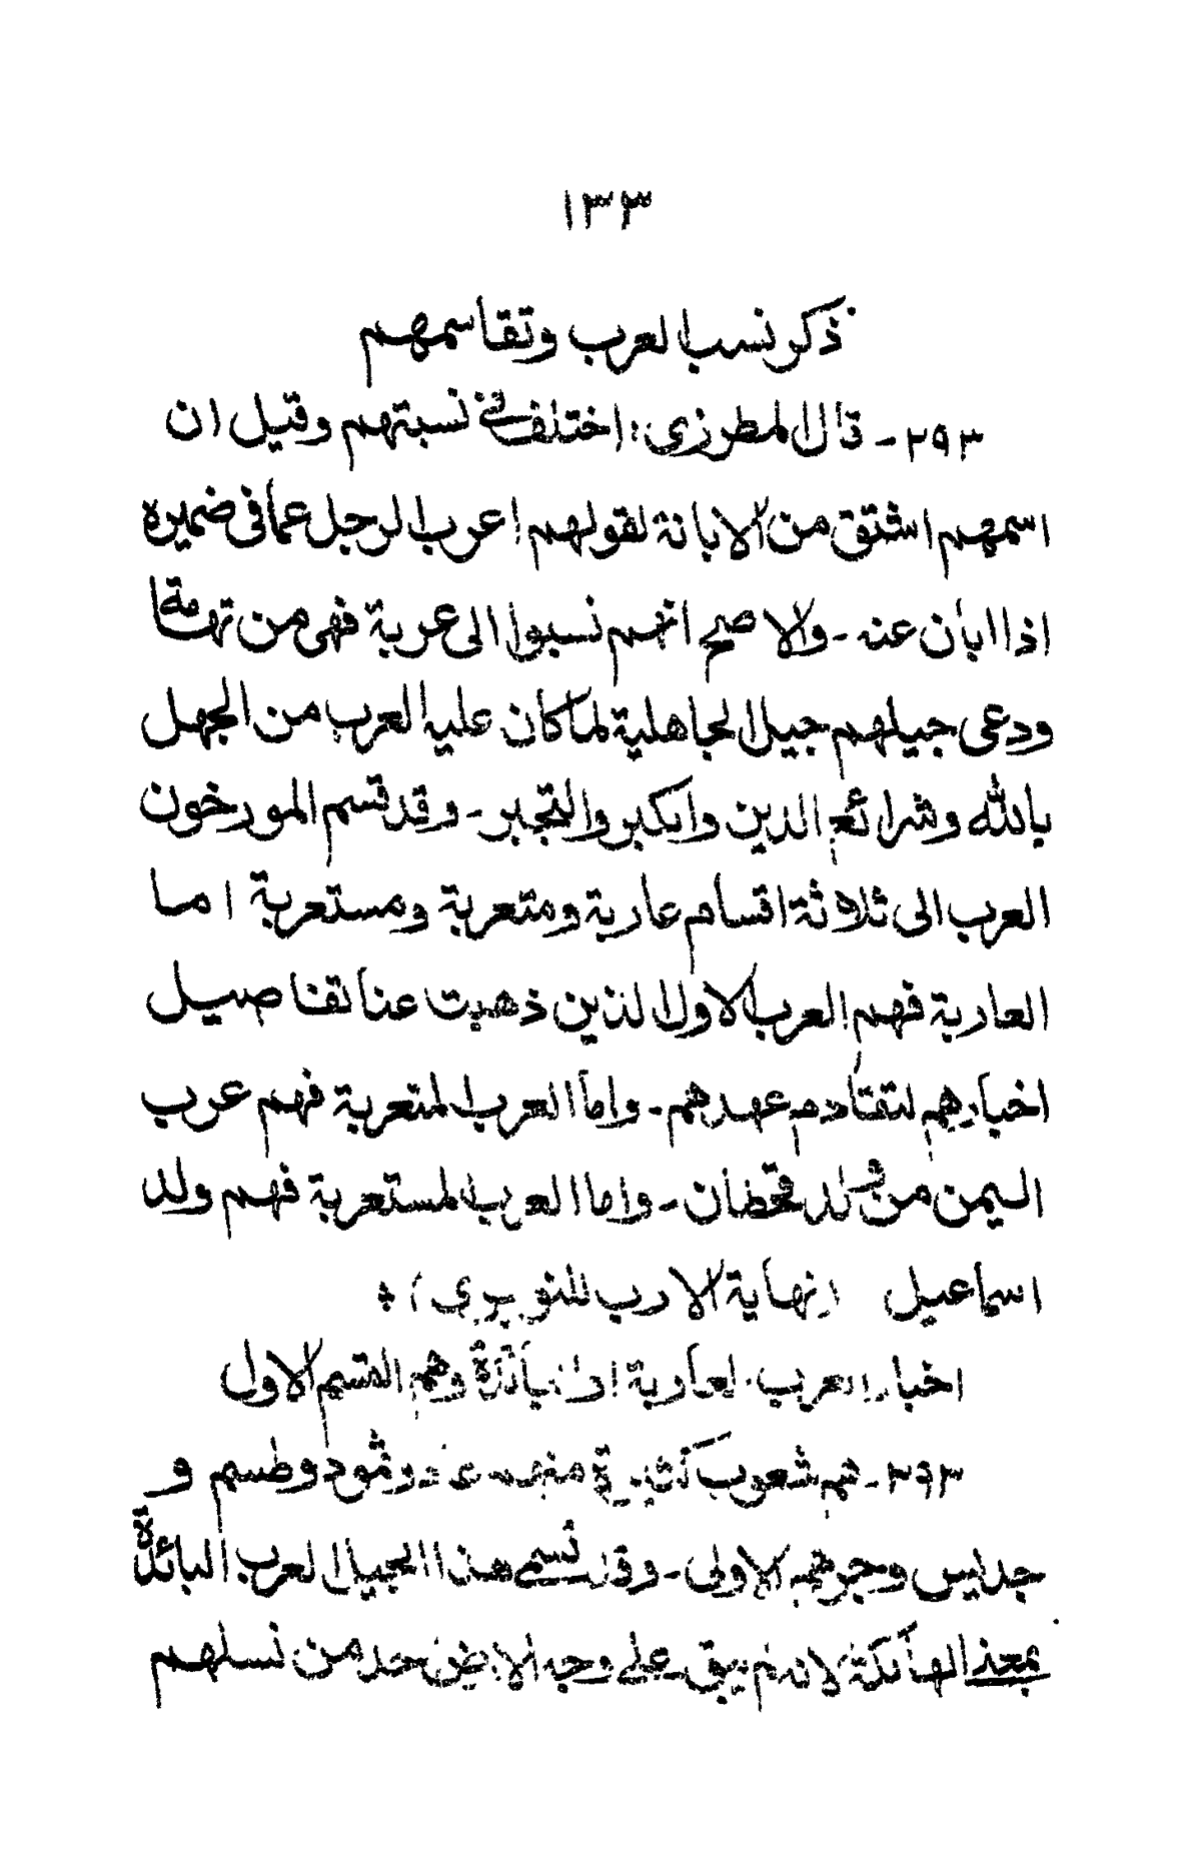 ١٣٣
ذكر نسب العرب وتقاسمهم
٢٩٣ - قال المطرزى: اختلف في نسبتهم وقيل ان
اسمهم اشتق من الابانة لقولهم اعرب الرجل عما فى ضميره
اذا ابان عنه - والاصح انهم نسبوا الى عربة فهى من تهامة
ودعى جيلهم جيل الجاهلية لما كان عليه العرب من الجهل
بالله وشرائع الدين والكبر والتجبر - وقد قسم المورخون
العرب الى ثلاثة اقسام عاربة ومتعربة ومستعربة اما
العاربة فهم العرب الاول الذين ذهبت عنا تفاصيل
اخبارهم لتقادم عهدهم - واما العرب المتعربة فهم عرب
اليمن من ولد قحطان - واما العرب المستعربة فهم ولد
اسماعيل (نهاية الارب للنويرى)
اخبار العرب العاربة او البائدة وهم القسم الاول
هم شعوب كثيرة منهم عاد وثمود وطسم و
جديس وجرهم الاولى - وقد تسمى هذا الجيل العرب البائدة
بمعنى الهالكة لانه لم يبق على وجه الارض احد من نسلهم